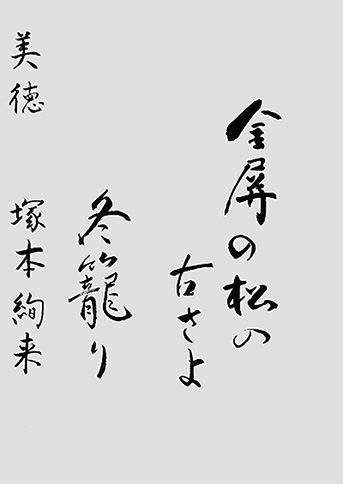 金屏の松の
古さよ
冬籠り
美徳 塚本絢来